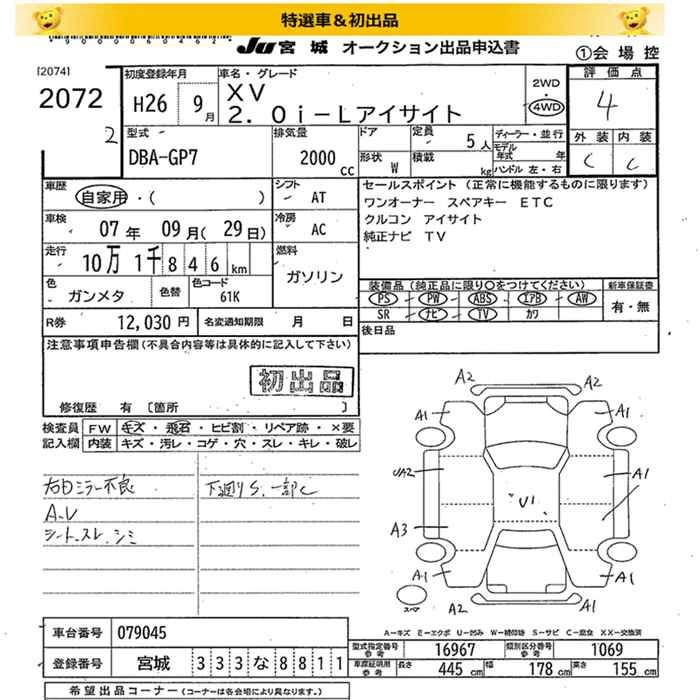 特選車＆初出品
JU 宮城 オークション出品申込書
①会場控
[2074]
2072
2
初度登録年月
H26 9月
車名・グレード
XV
2.0i-Lアイサイト
2WD
・
4WD
評価点
4
外装 内装
C C
型式
DBA-GP7
排気量
2000 cc
ドア
形状 W
定員 5人
積載 kg
ディーラー・並行
モデル年式 年
ハンドル 左・右
車歴
自家用・( )
シフト AT
車検
07年 09月(29日)
冷房 AC
走行
10万1千846km
燃料
ガソリン
色
ガンメタ
色替
色コード
61K
セールスポイント(正常に機能するものに限ります)
ワンオーナー スペアキー ETC
クルコン アイサイト
純正ナビ TV
装備品(純正品に限り○をつけてください)
PS PW ABS エアB AW
SR ナビ TV カワ
新車保証書
有・無
R券 12,030円
名変通知期限 月 日
後日品
注意事項申告欄(不具合内容等は具体的に記入して下さい)
初出品
修復歴 有 [箇所 ]
検査員記入欄
FW キズ・飛石・ヒビ割・リペア跡・×要
内装 キズ・汚レ・コゲ・穴・スレ・キレ・破レ
右Dミラー不良
A.U
シート、スレ、シミ
下廻りS、一部C
A2 A2
A1 A1
UA2 A1
U1
A3 A1
A1 A1
A2 A1
スペア
A-キズ E-エクボ U-凹み W-補修跡 S-サビ C-腐食 XX-交換済
車台番号 079045
登録番号 宮城 333な8811
型式指定番号 参考 16967
類別区分番号 参考 1069
車庫証明用 参考 長さ 445cm 幅 178cm 高さ 155cm
希望出品コーナー(コーナーは各会場により異なります。)